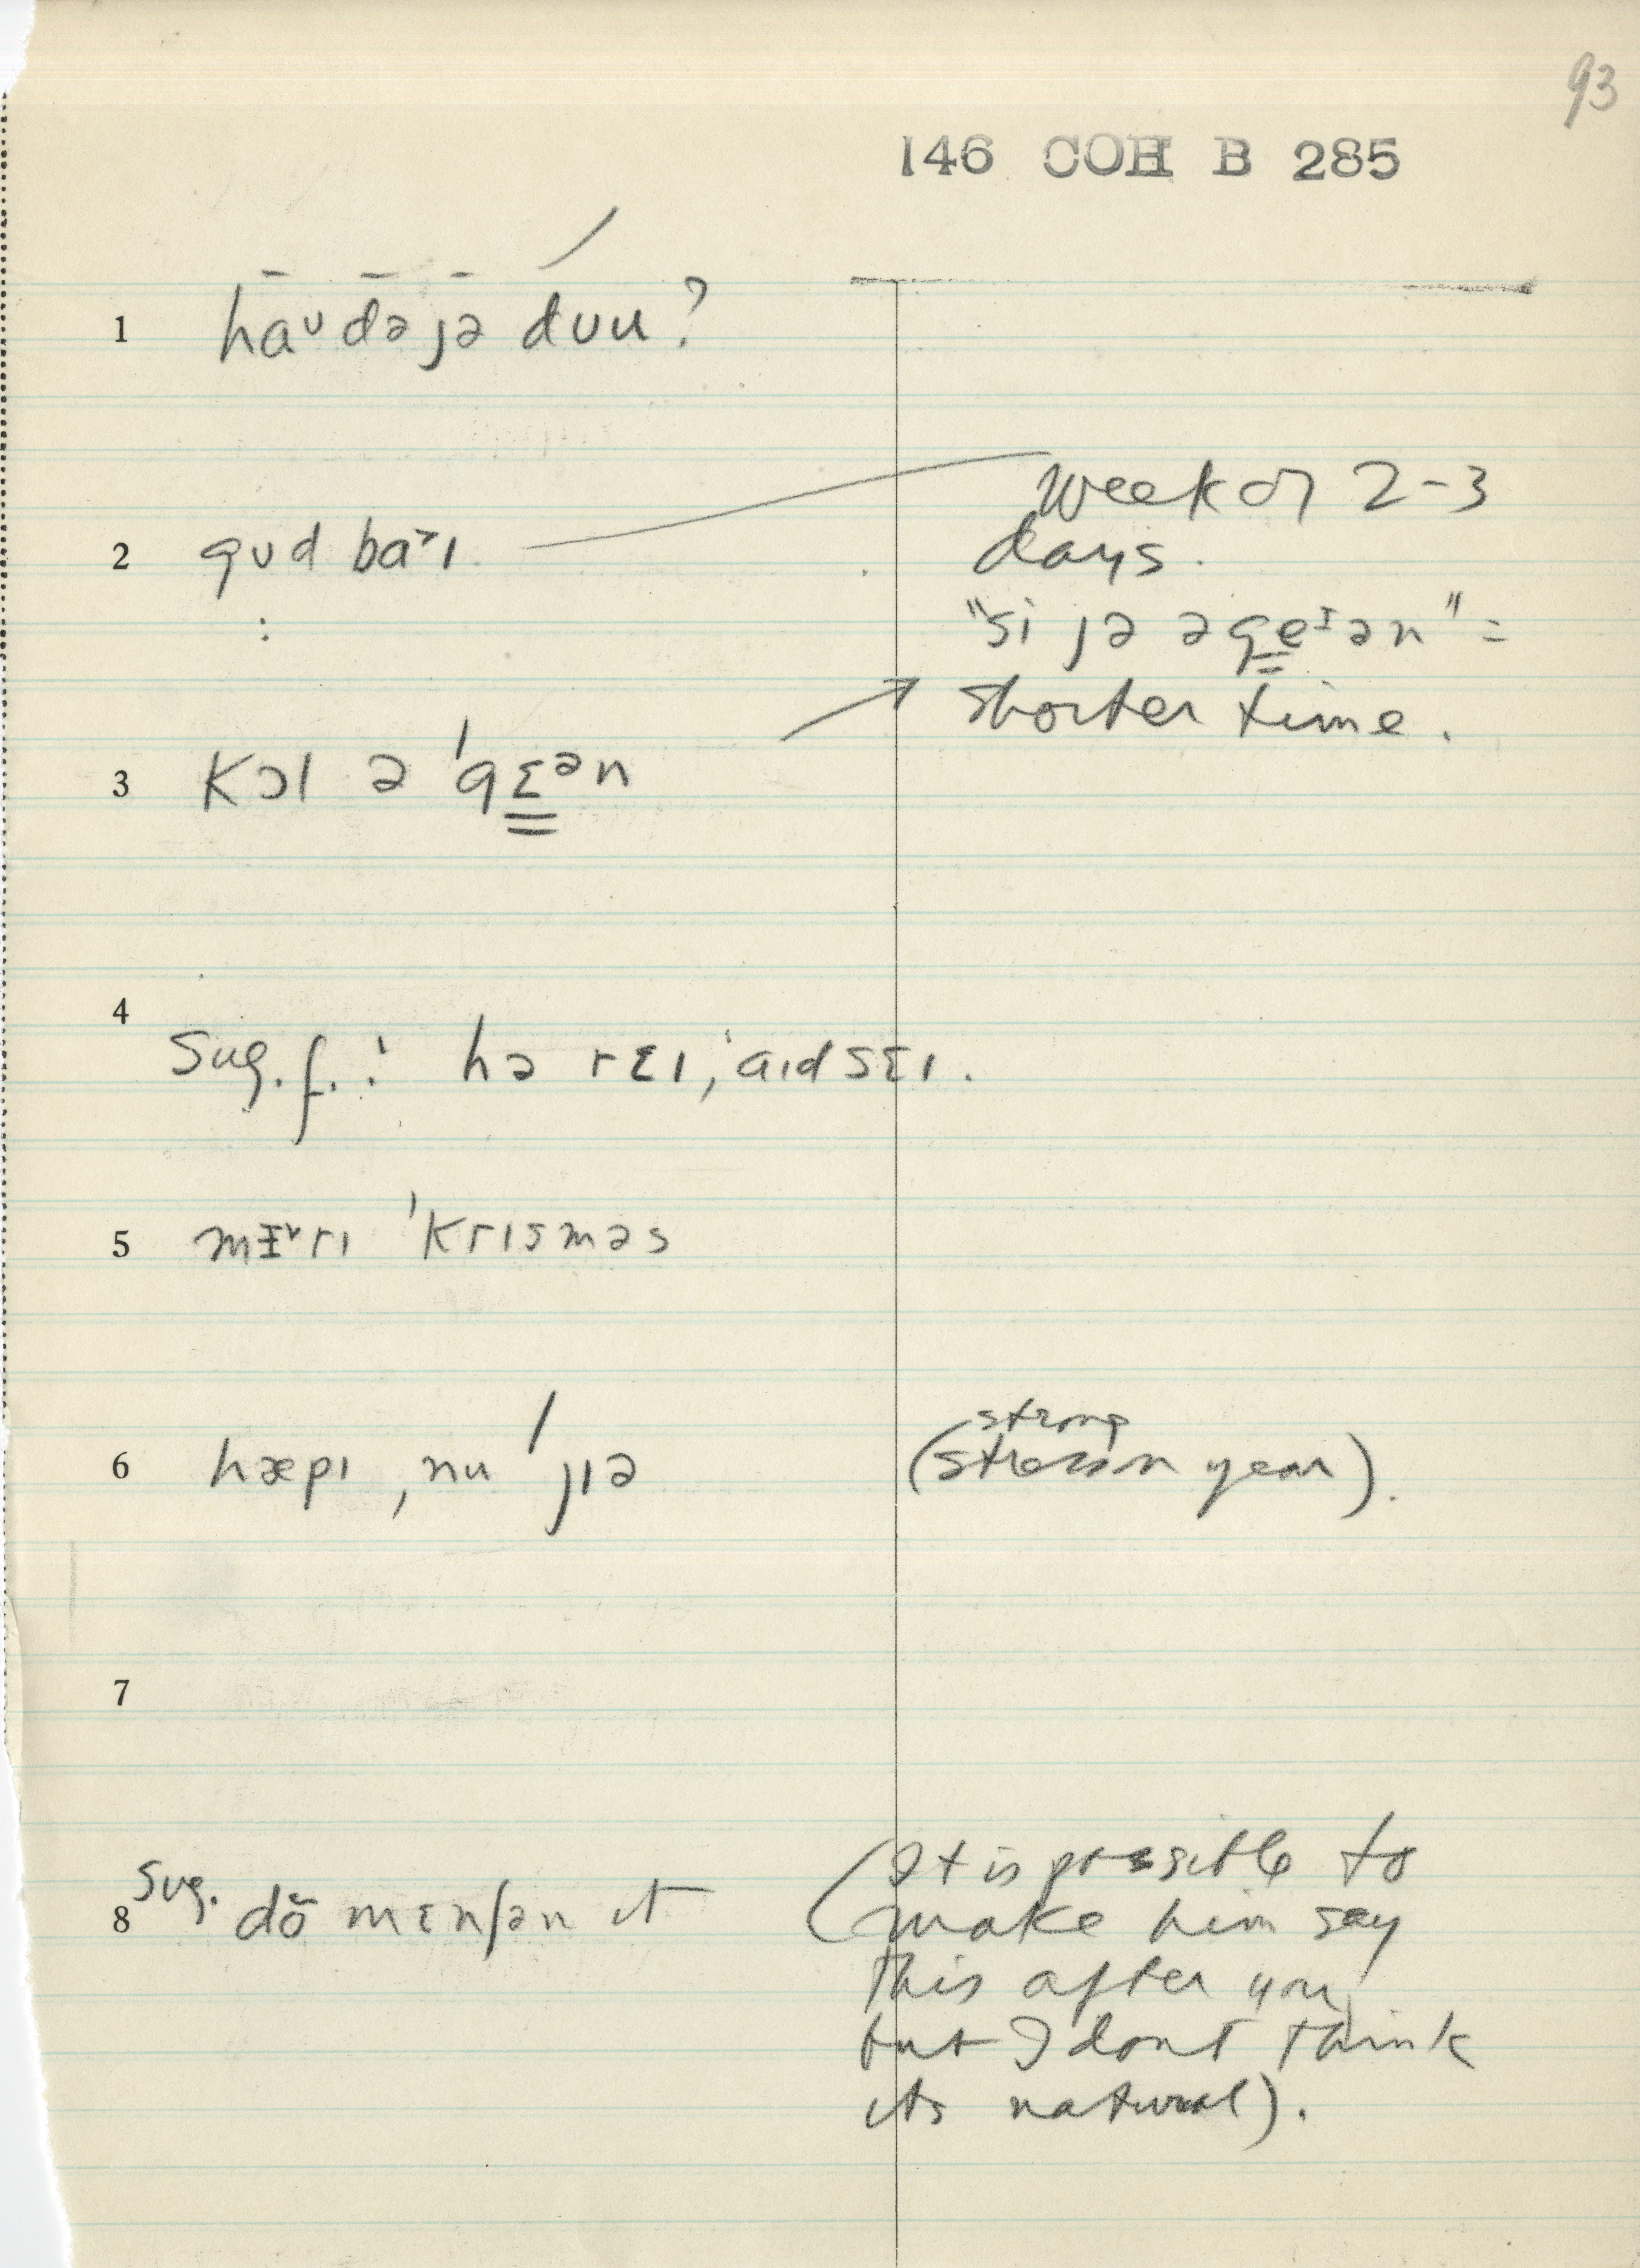 93
146 COH B 285
1 haᶷ də jə dʊu?
2 gʊd ba˃ɪ
:
week or 2-3
days.
"si jə əge̳ᶦən" =
shorter time.
3 Kɔl ə 'gɛ̳ᵊn
4
Sug. f. : hə rɛɪ, 'aɪd sɛɪ.
5 mɪ˅rɪ 'krɪsməs
6 hæpɪ ˌnu 'jɪə
strong
(stress on year).
7
8 Sug. dõ mɛnʃən ɪt
(It is possible to
make him say
this after you
but I dont think
its natural).